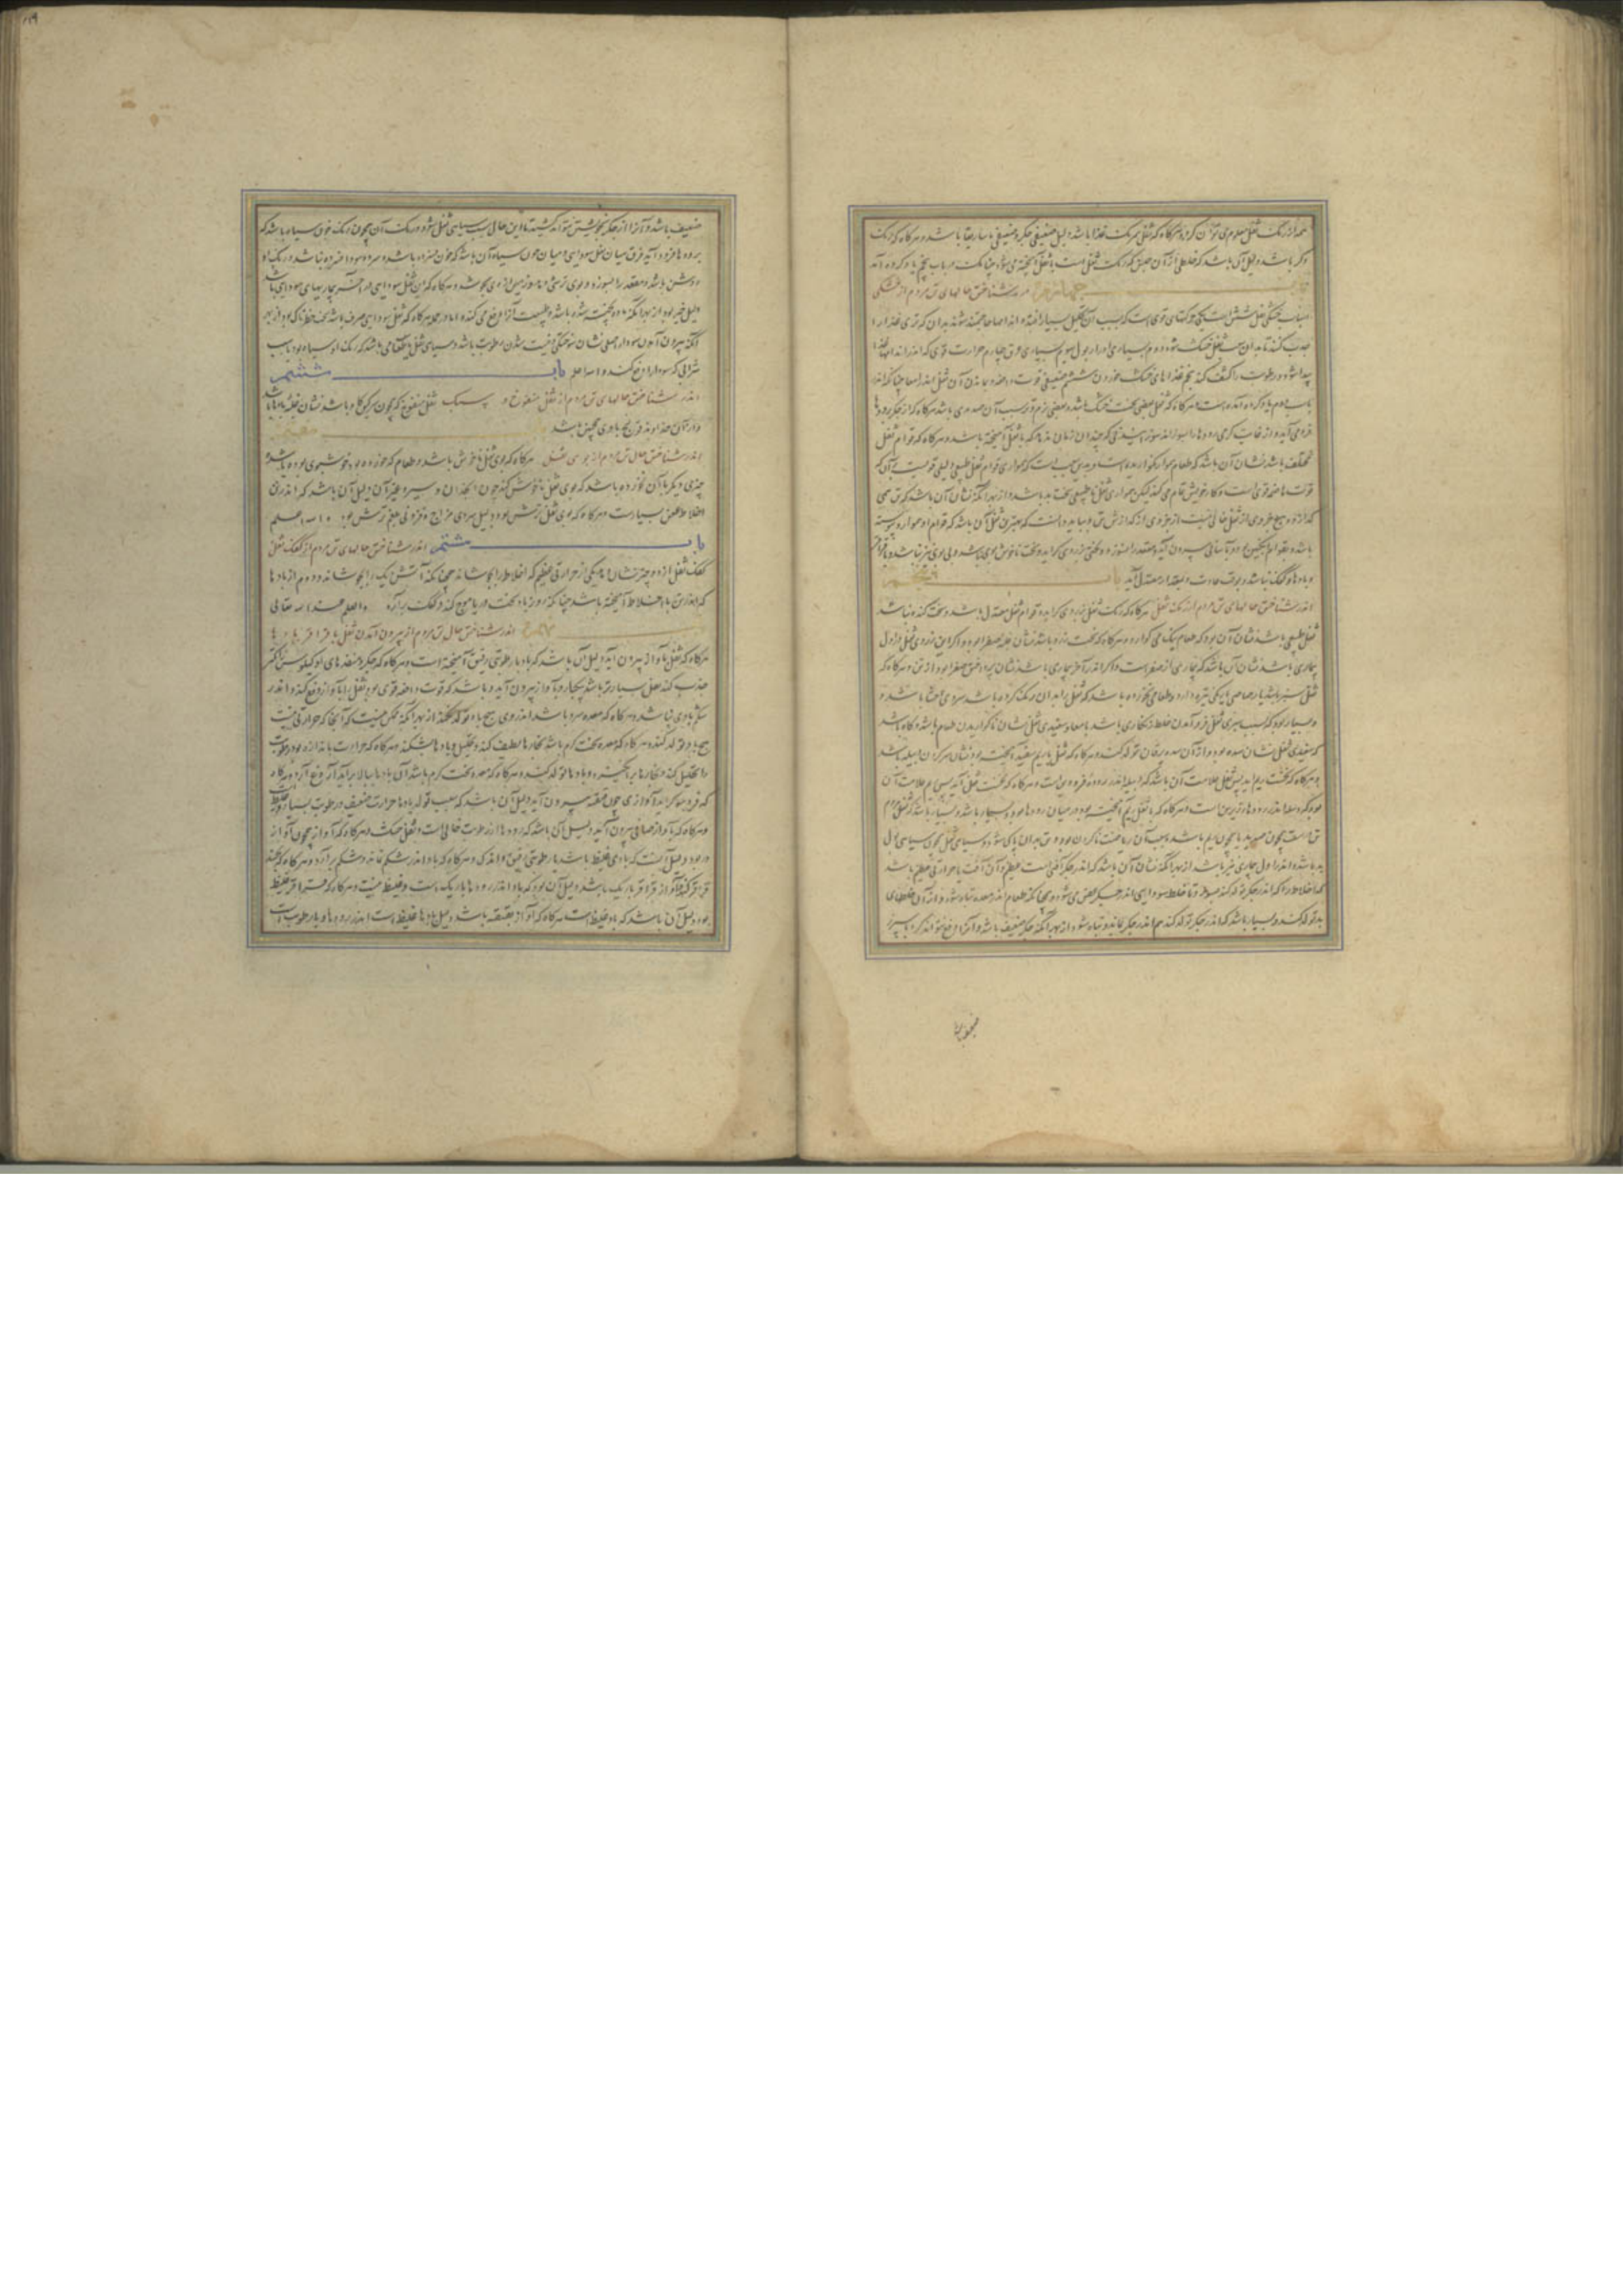 همه از رنگ ثفل معلوم می توان کرد و هرگاه که ثفل همرنگ غذا باشد دلیل ضعیفی جگر و ضعیفی ماساریقا باشد و هرگاه که رنگ
دگر باشد دلیل آن باشد که خلطی از آن جنس که رنگ ثفل است با ثفل آمیخته می شود چنانکه در باب پنجم یاد کرده آید
باب چهارم اندر شناختن حالهای تن مردم از خشکی
اسباب خشکی ثفل شش است یکی حرکتهای قوی است که بسبب آن تحلیل بسیار افتد و اندامها حاجتمند شوند بدان که تری غذا را
جذب کنند تا بدان سبب ثفل خشک شود دوم بسیاری ادرار بول سوم بسیاری عرق چهارم حرارت قوی که اندر اندامهاء غذا
پیدا شود و رطوبت را نشف کند پنجم غذاهای خشک خوردن ششم ضعیفی قوت دافعه و بماندن آن ثفل اندر امعا چنانکه اندر
باب دوم یاد کرده آمده است و هرگاه که ثفل بعضی سخت خشک باشد و بعضی نرم و تر سبب آن صدیدی باشد هرگاه که از جگر برودها
فرو می آید و از غایت گرمی رودها را بسوزاند
مختلف باشد نشان آن باشد که طعام هموار نگواریده است و بدین سبب است که همواری قوام ثفل طبیعی دلیلی قویست بر آن که
قوت هاضمه قوی است و کار خویش تمام می کند لیکن همواری ثفل نا طبیعی سخت بد باشد از بهر آنکه نشان آن باشد که تن همی
گدازد و هیچ جزوی از ثفل خالی نیست از جزوی از گدازش تن و بباید دانست که بهترین ثفل آن باشد که قوام او هموار و پیوسته
باشد و بقوام انگبین بود و بآسانی بیرون آید و مقعد را نسوزد و لختی بزردی گراید و سخت ناخوش بوی نباشد و بی بوی نیز نباشد و با قراقر
و بادها و کفک نباشد و بوقت عادت و بمقدار معتدل آید باب پنجم
اندر شناختن حالهای تن مردم از رنگ ثفل هرگاه که رنگ ثفل بزردی گراید و قوام ثفل معتدل باشد و سخت گنده نباشد
ثفل طبیعی باشد نشان آن بود که طعام نیک می گوارد و هرگاه که سخت زرد باشد نشان غلبه صفرا بود و اگر این زردی ثفل در اول
بیماری باشد نشان آن باشد که بیماری از صفراست و اگر اندر آخر بیماری باشد نشان پرداختن صفرا بود از تن و هرگاه که
ثفل سبز باشد
و بسیار بود که سبب سبزی ثفل فرو آمدن خلط زنگاری باشد بامعا و سفیدی ثفل نشان ناگواریدن طعام باشد و گاه باشد
که سفیدی ثفل نشان سده بود و از آن سده یرقان تولد کند و هرگاه که ثفل با ریم سفید آمیخته بود نشان سر کردن دبیله باشد
و هرگاه که نخست ریم آید پس ثفل علامت آن باشد که دبیله اندر روده فرودین است و هرگاه که نخست ثفل آید پس ریم علامت آن
بود که دبیله اندر رودهاء زبرین است و هرگاه که با ثفل ریم آمیخته بود در میان رودها بود و بسیار باشد که ثفل مردم
تن درست همچون صدید یا همچون ریم باشد و سبب آن ریاضت ناکردن بود و تن بدان پاک شود و سیاهی ثفل همچون سیاهی بول
بد باشد و اندر اول بیماری بتر باشد از بهر آنکه نشان آن باشد که اندر جگر آفتی است عظیم و آن آفت یا حرارتی عظیم باشد
که اخلاط را که اندر جگر تولد کند بسوزد و تا خلط سودایی اندر جگر عفن می شود و همچنانکه طعام اندر معده تباه شود و از آن خلطهای
بد تولد کند و بسیار باشد که اندر جگر تولد کند هم اندر جگر بماند و تباه شود از بهر آنکه جگر ضعیف باشد و آنرا دفع نتواند کرد یا سپرز
ضعیف باشد
ضعیف باشد و آنرا از جگر بخویشتن نتواند کشید تا این حال سبب سیاهی ثفل شود و رنگ آن همچون رنگ خون سیاه باشد که
برودها فرود آید و فرق میان ثفل سودایی و میان خون سیاه آن باشد که خون فسرده باشد و سرد و سودا فسرده نباشد و رنگ او
روشن باشد و مقعد را بسوزد و بوی ترشی دهد و زمین از وی بجوشد و هرگاه که این ثفل سودایی در آخر بیماریهای سودایی باشد
دلیل خیر بود از بهر آنکه ماده پخته شده باشد و طبیعت آنرا دفع می کند اما در جمله هرگاه که ثفل سودایی صرف باشد سخت خطرناک بود از بهر
آنکه بیرون آمدن سوداء اصلی نشان سوختگی و نیست شدن رطوبت باشد و سیاهی ثفل یا از طعامی باشد که رنگ او سیاه بود یا سبب
شرابی که سودا را دفع کند والله اعلم باب ششم
اندر شناختن حالهای تن مردم از ثفل منفوخ و سبک ثفل منفوخ که همچون سرگین گاو باشد نشان غلبه بادها باشد
باب هفتم
اندر شناختن حال تن مردم از بوی ثفل هرگاه که بوی ثفل ناخوش باشد و طعام که خورده بود خوشبوی بوده باشد و
چیزی دیگر با آن نخورده باشد که بوی ثفل ناخوش کند چون انجدان و سیر و غیر آن دلیل آن باشد که اندر تن
اخلاط عفن بسیارست و هرگاه که بوی ثفل ترش بود دلیل سردی مزاج و فزونی بلغم ترش بود والله اعلم
باب هشتم اندر شناختن حالهای تن مردم از کفک ثفل
کفک ثفل از دو چیز نشان دهد یکی از حرارتی عظیم که اخلاط را بجوشاند همچنانکه آتش دیگ را بجوشاند و دوم از بادها
که اندر تن با اخلاط آمیخته باشد چنانکه روز باد سخت دریا موج کند و کفک برآرد والعلم عند الله تعالی
باب نهم اندر شناختن حال تن مردم از بیرون آمدن ثفل با قراقر و بادها
هرگاه که ثفل با آواز بیرون آید دلیل آن باشد که باد با رطوبتی رقیق آمیخته است و هرگاه که جگر و منفذهای او کیلوس کمتر
جذب کند ثفل بسیارتر باشد و بیکبار و با آواز بیرون آید و باشد که قوت دافعه قوی بود ثفل را با آواز دفع کند و اندر
شکم بادی نباشد و هرگاه که معده سرد باشد اندر وی هیچ باد تولد نکند از بهر آنکه ممکن نیست که آنجا که حرارتی نیست
هیچ باد تولد کند و هرگاه که معده سخت گرم باشد بخارها لطیف کند و تحلیل و بادها بشکند و هرگاه که حرارت باندازه بود رطوبت
را تحلیل کند و بخارها برانگیزد و بادها تولد کند و هرگاه که معده سخت گرم باشد آن بادها ببالا برآید آروغ آرد و هرگاه
که فرو سو گراید آوازی چون قهقهه بیرون آید دلیل آن باشد که سبب تولد بادها حرارت ضعیف و رطوبت بسیار و غلیظ است
و هرگاه که باد آواز صافی بیرون آید دلیل آن باشد که رودها از رطوبت خالی است و ثفل خشک و هرگاه که آواز همچون آواز
بود دلیل آنست که بادی غلیظ باشد با رطوبتی رقیق و اندک و هرگاه که باد اندر شکم بماند و شکم برآرد و هرگاه که بجنبد
قراقر کند و آواز قراقر باریک باشد دلیل آن بود که باد اندر رودهاء باریک است و غلیظ نیست و هرگاه که قراقر غلیظ
بود دلیل آن باشد که باد غلیظ است هرگاه که آواز بقبقه باشد دلیل بادها غلیظ است اندر رودها و با رطوبت است